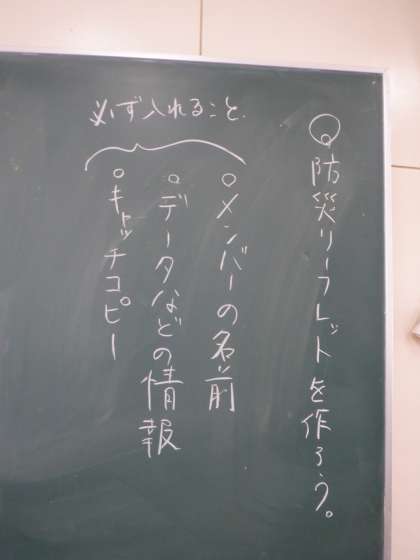 ◎防災リーフレットを作ろう。
必ず入れること.
○メンバーの名前
○データなどの情報
○キャッチコピー